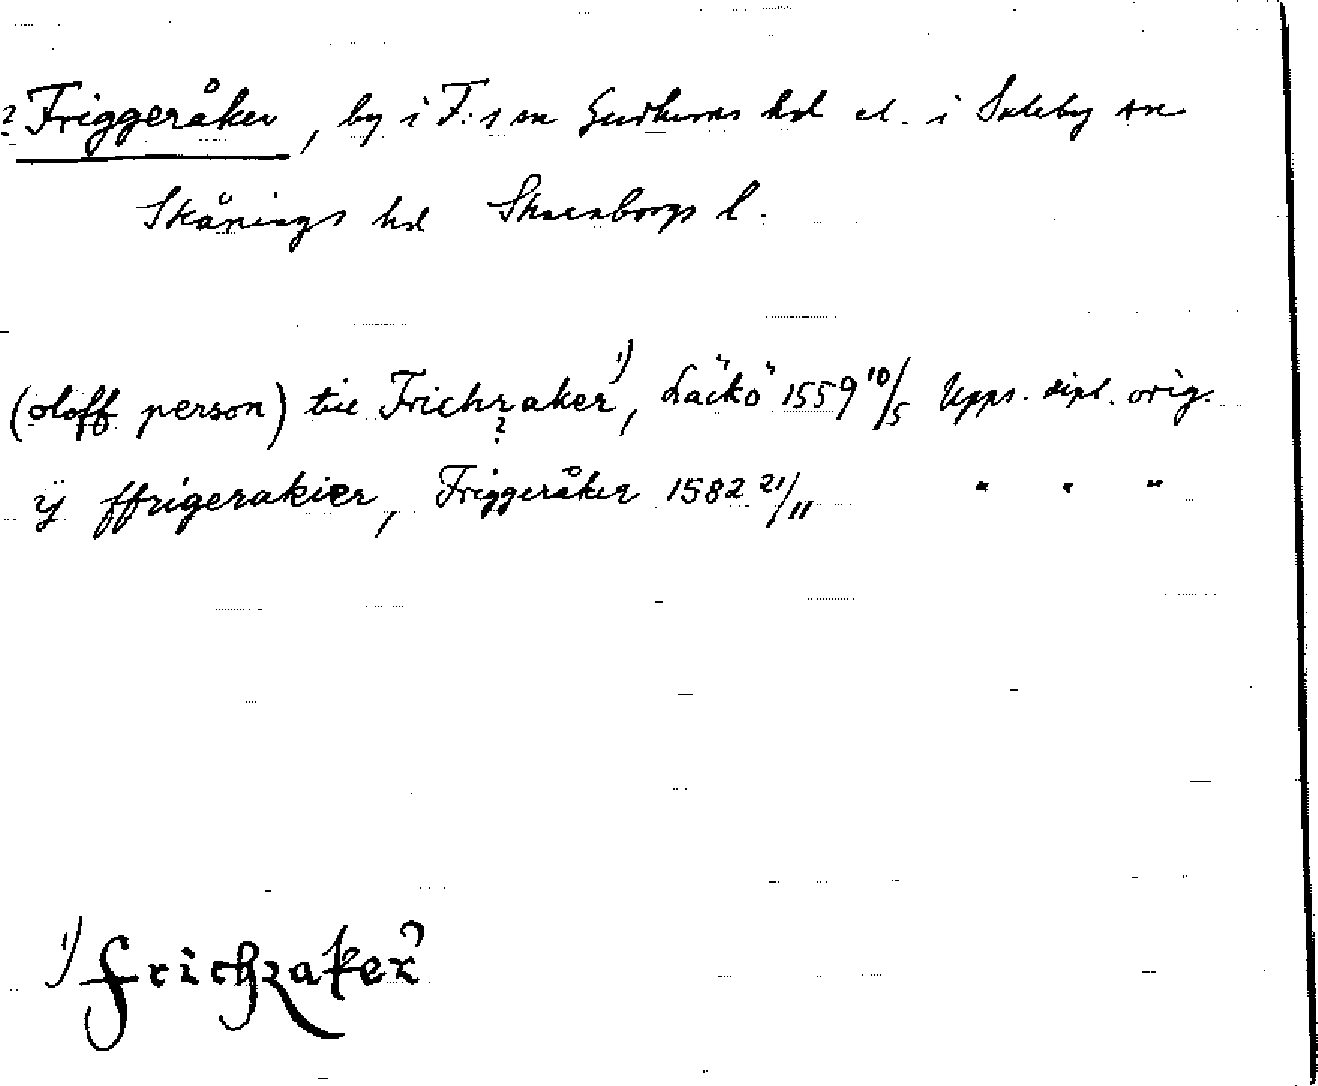 ? Friggeråker, by i F:s sn Gudhems hd el. i Saleby sn
Skånings hd Skaraborgs l.
(oloff person) tiil Frichraker¹), Läckö 1559 10/5 Upps. dipl. orig.
?
ÿ ffrigerakier, Friggeråker 1582 21/11 " " "
¹) frichraker